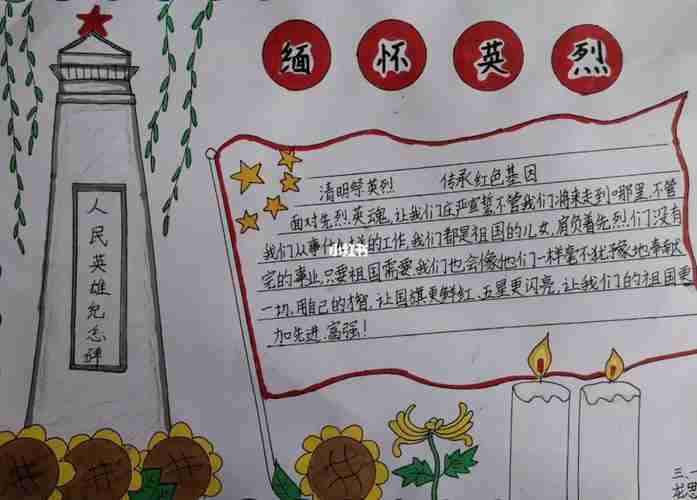 缅怀英烈
人民英雄纪念碑
清明祭英烈 传承红色基因
面对先烈英魂,让我们庄严宣誓,不管我们将来走到哪里,不管
我们从事什么样的工作,我们都是祖国的儿女,肩负着先烈们没有
完的事业,只要祖国需要,我们也会像他们一样毫不犹豫地奉献
一切,用自己的才智,让国旗更鲜红,五星更闪亮,让我们的祖国更
加先进、富强!
小红书
三.一